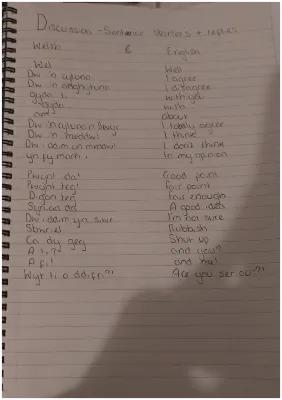 Discussion - Sentence starters + replies
Welsh & English
Wel Well
Dw 'n cytuno I agree
Dw 'n anghytuno I disagree
gyda ti with you
gyda with
am about
Dw 'n cytuno'n llwyr I totally agree
Dw 'n meddwl I think
Dw i ddim yn meddwl I don't think
yn fy marn i In my opinion
Pwynt da! Good point
Pwynt teg! fair point
Digon teg fair enough
Syniad da A good idea
Dw i ddim yn siwr I'm not sure
Sbwriel Rubbish
Ca dy geg Shut up
A ti? and you?
A fi! and me!
Wyt ti o ddifri?! Are you serious?!